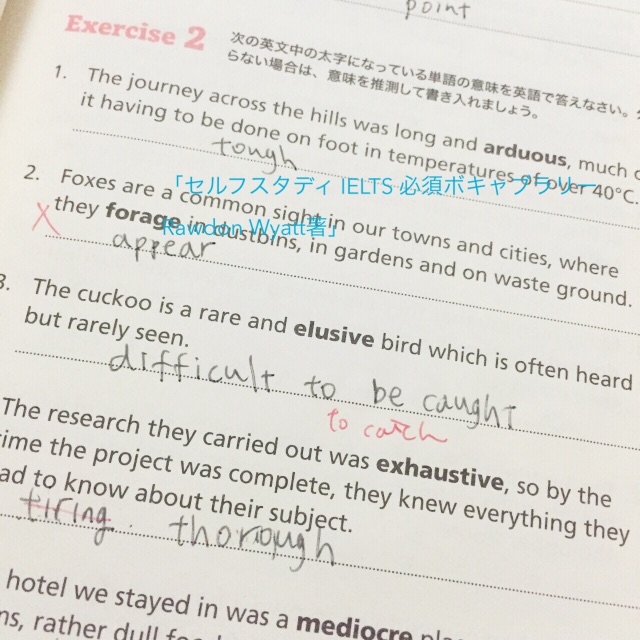 point
Exercise 2
次の英文中の太字になっている単語の意味を英語で答えなさい。
らない場合は、意味を推測して書き入れましょう。
1. The journey across the hills was long and arduous, much
it having to be done on foot in temperatures of over 40°C.
tough
2. Foxes are a common sight in our towns and cities, where
「セルフスタディ IELTS 必須ボキャブラリー
they forage in dustbins, in gardens and on waste ground.
Rawdon Wyatt著」
X appear
3. The cuckoo is a rare and elusive bird which is often heard
but rarely seen.
difficult to be caught
to catch
The research they carried out was exhaustive, so by the
time the project was complete, they knew everything they
had to know about their subject.
tiring thorough
hotel we stayed in was a mediocre
rather dull